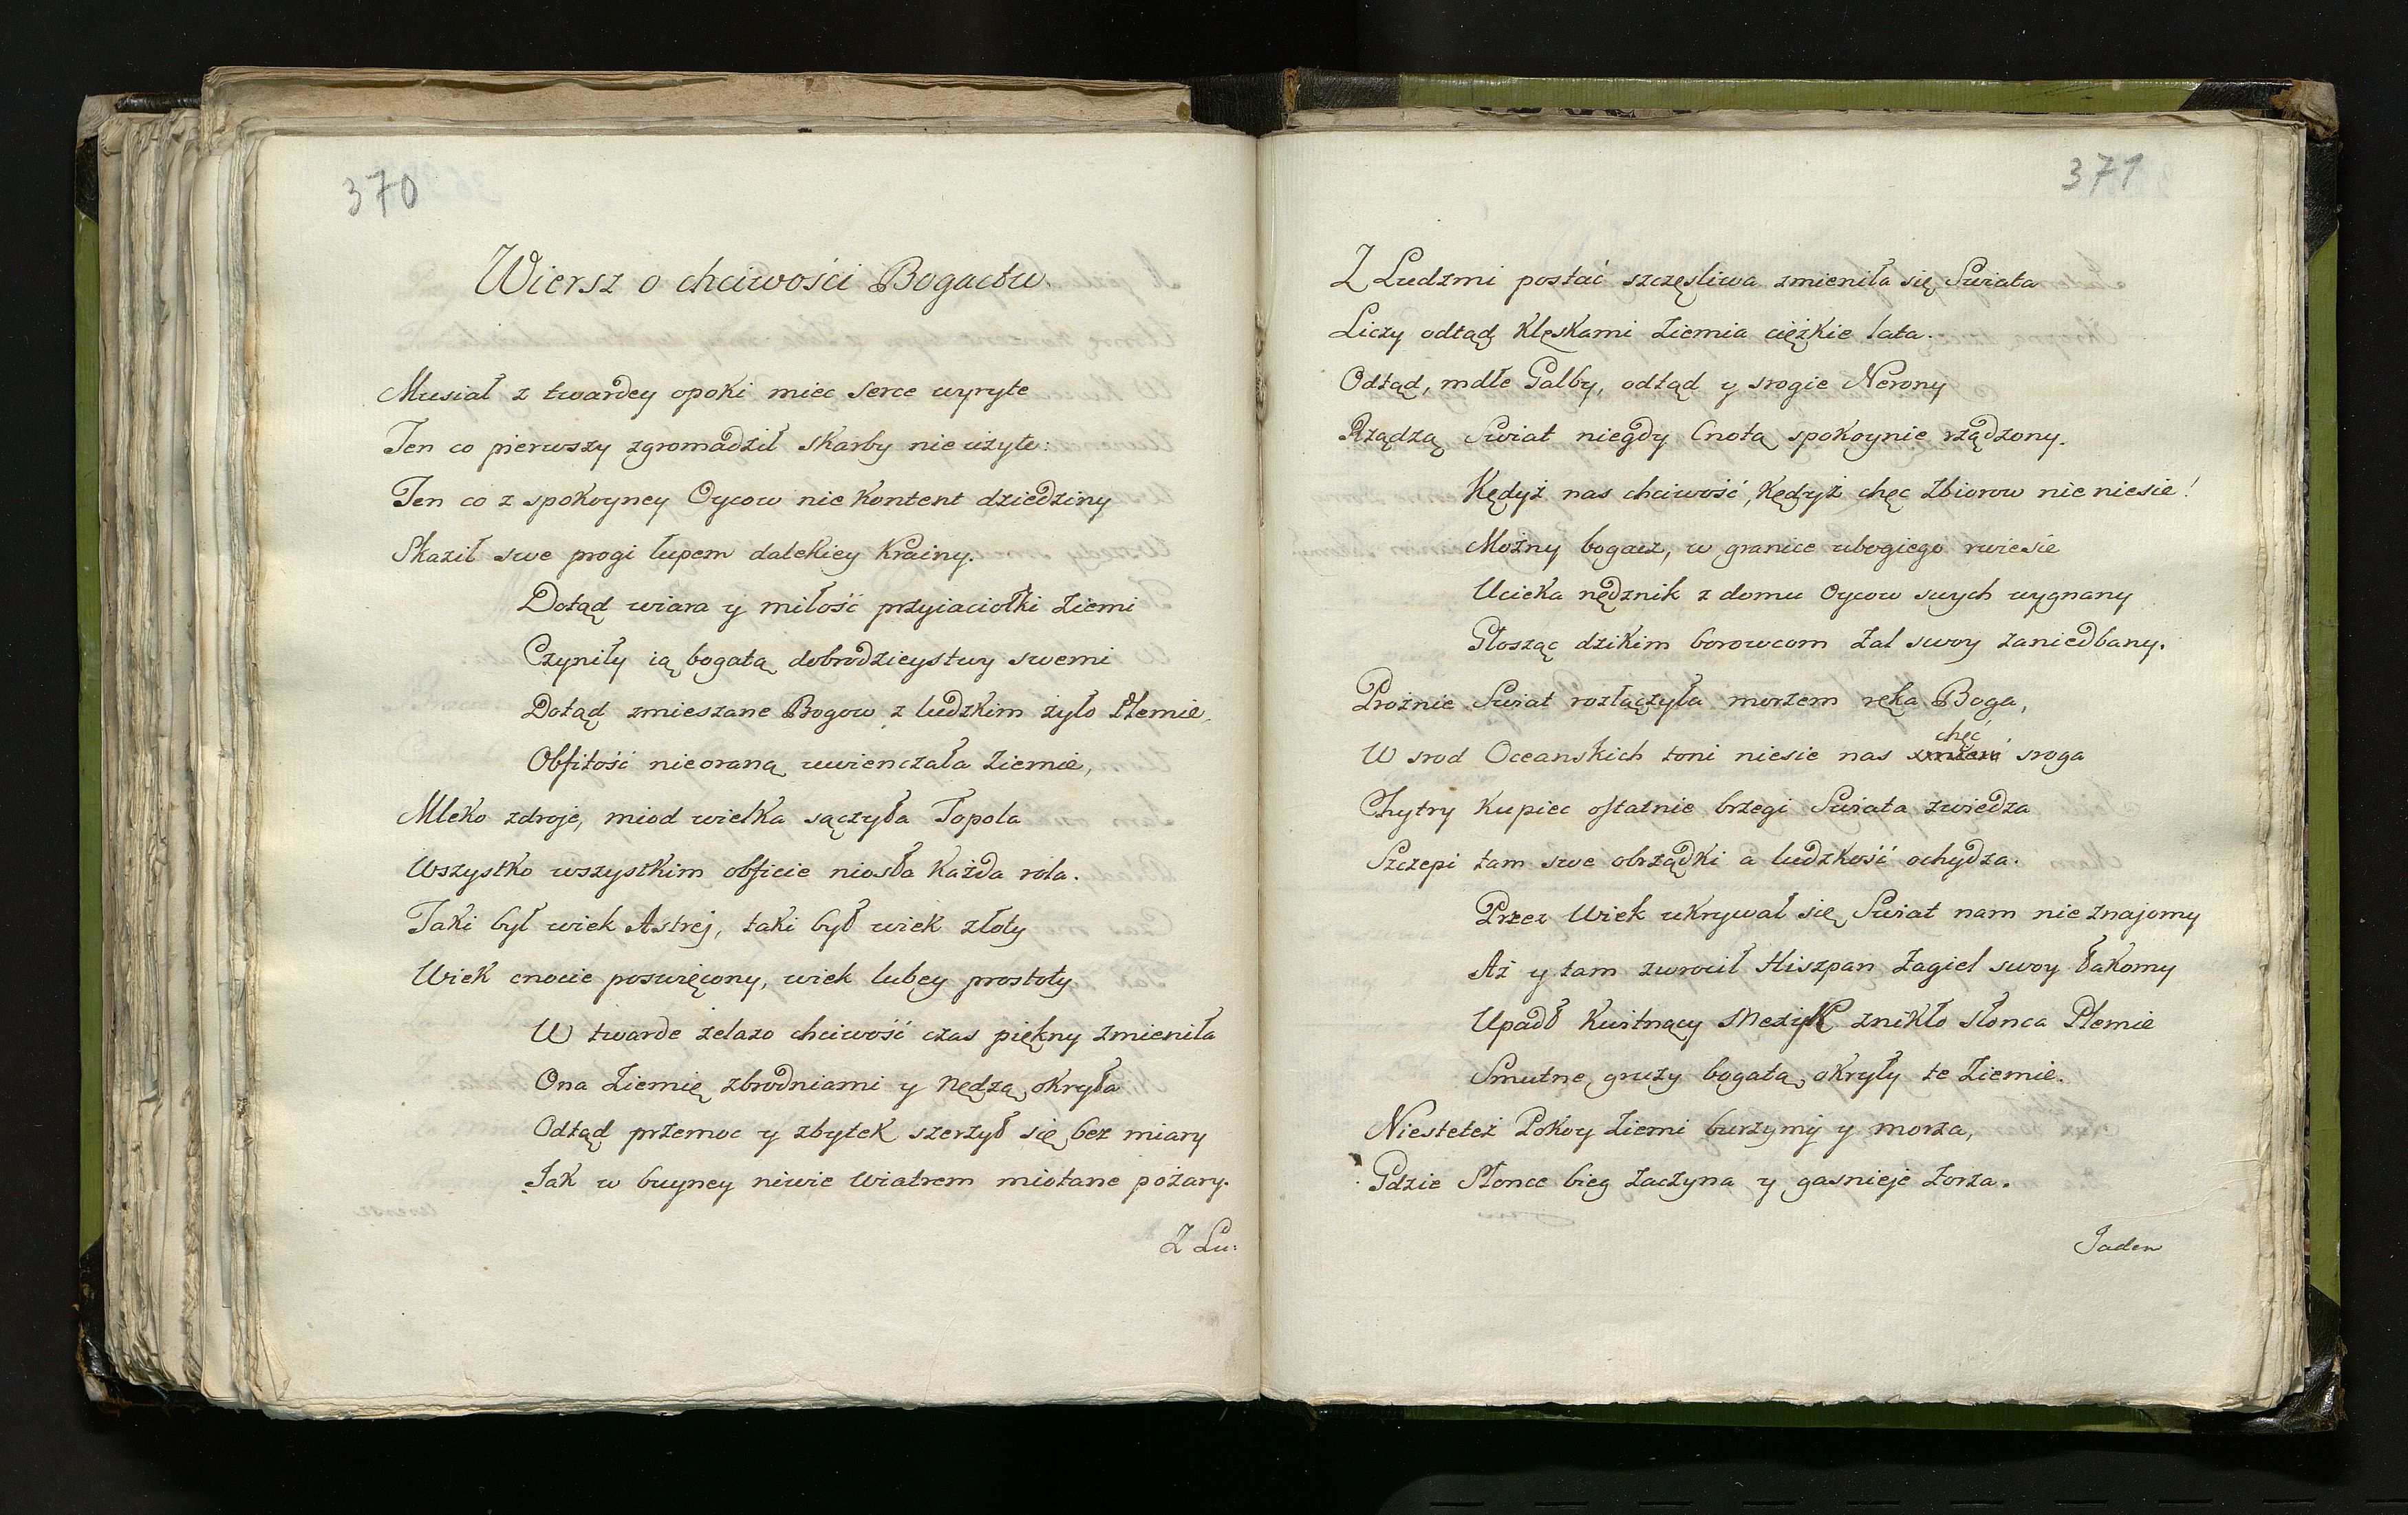 370
Wiersz o chciwości Bogactw.
Musiał z twardey opoki miec serce wyryte
Ten co pierwszy zgromadził skarby nie użyte:
Ten co z spokoyney Oycow nie kontent dziedziny
Skaził swe progi łupem dalekiey krainy.
Dotąd wiara y miłość przyiaciołki ziemi
Czyniły ią bogatą dobrodzieystwy swemi
Dotąd zmieszane Bogow z ludzkim żyło Plemie,
Obfitość nieoraną uwienczała ziemie,
Mleko zdroje, miod wielka sączyła Topola
Wszystko wszystkim obficie niosła każda rola.
Taki był wiek Astrej, taki był wiek złoty
Wiek cnocie poswięcony, wiek lubey prostoty
W twarde żelazo chciwość czas piękny zmieniła
Ona ziemię zbrodniami y nędzą okryła
Odtąd przemoc y zbytek szerzył się bez miary
Jak w buyney niwie wiatrem miotane pożary.
Z Lu:
371
Z Ludzmi postać szczęsliwa zmieniła się Swiata
Liczy odtąd klęskami ziemia ciężkie lata.
Odtąd, mdłe Galby, odtąd y srogie Nerony
Rządzą Swiat niegdy Cnotą spokoynie rządzony.
Kędyż nas chciwość, kędyż chęc zbiorow nie niesie!
Możny bogacz, w granice ubogiego rwie sie
Ucieka nędznik z domu Oycow swych wygnany
Głosząc dzikim borowcom żal swoy zaniedbany.
Prożnie Swiat rozłączyła morzem ręka Boga,
chęć
W srod Oceanskich toni niesie nas sroga
Chytry kupiec ostatnie brzegi Swiata zwiedza
Szczepi tam swe obrządki a ludzkość ochydza.
Przez Wiek ukrywał się Swiat nam nie znajomy
Aż y tam zwrocił Hiszpan żagiel swoy łakomy
Upadł kwitnący Mexyk znikło słonca Plemie
Smutne gruzy bogatą okryły te ziemie.
Niestetez Pokoy ziemi burzymy y morza,
Gdzie Słonce bieg zaczyna y gasnieje zorza.
Jaden